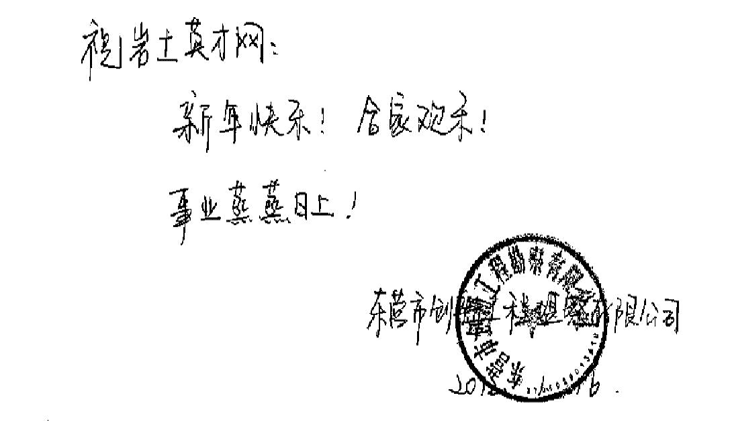 祝岩土英才网：
新年快乐！合家欢乐！
事业蒸蒸日上！
东营市创 工程 有限公司
东营市 工程勘察有限公司